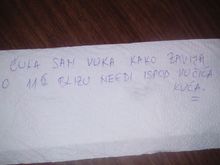 ČULA SAM VUKA KAKO ZAVIJA
O 11 BLIZU NEEDI ISPOD VUČICA
KUĆA.